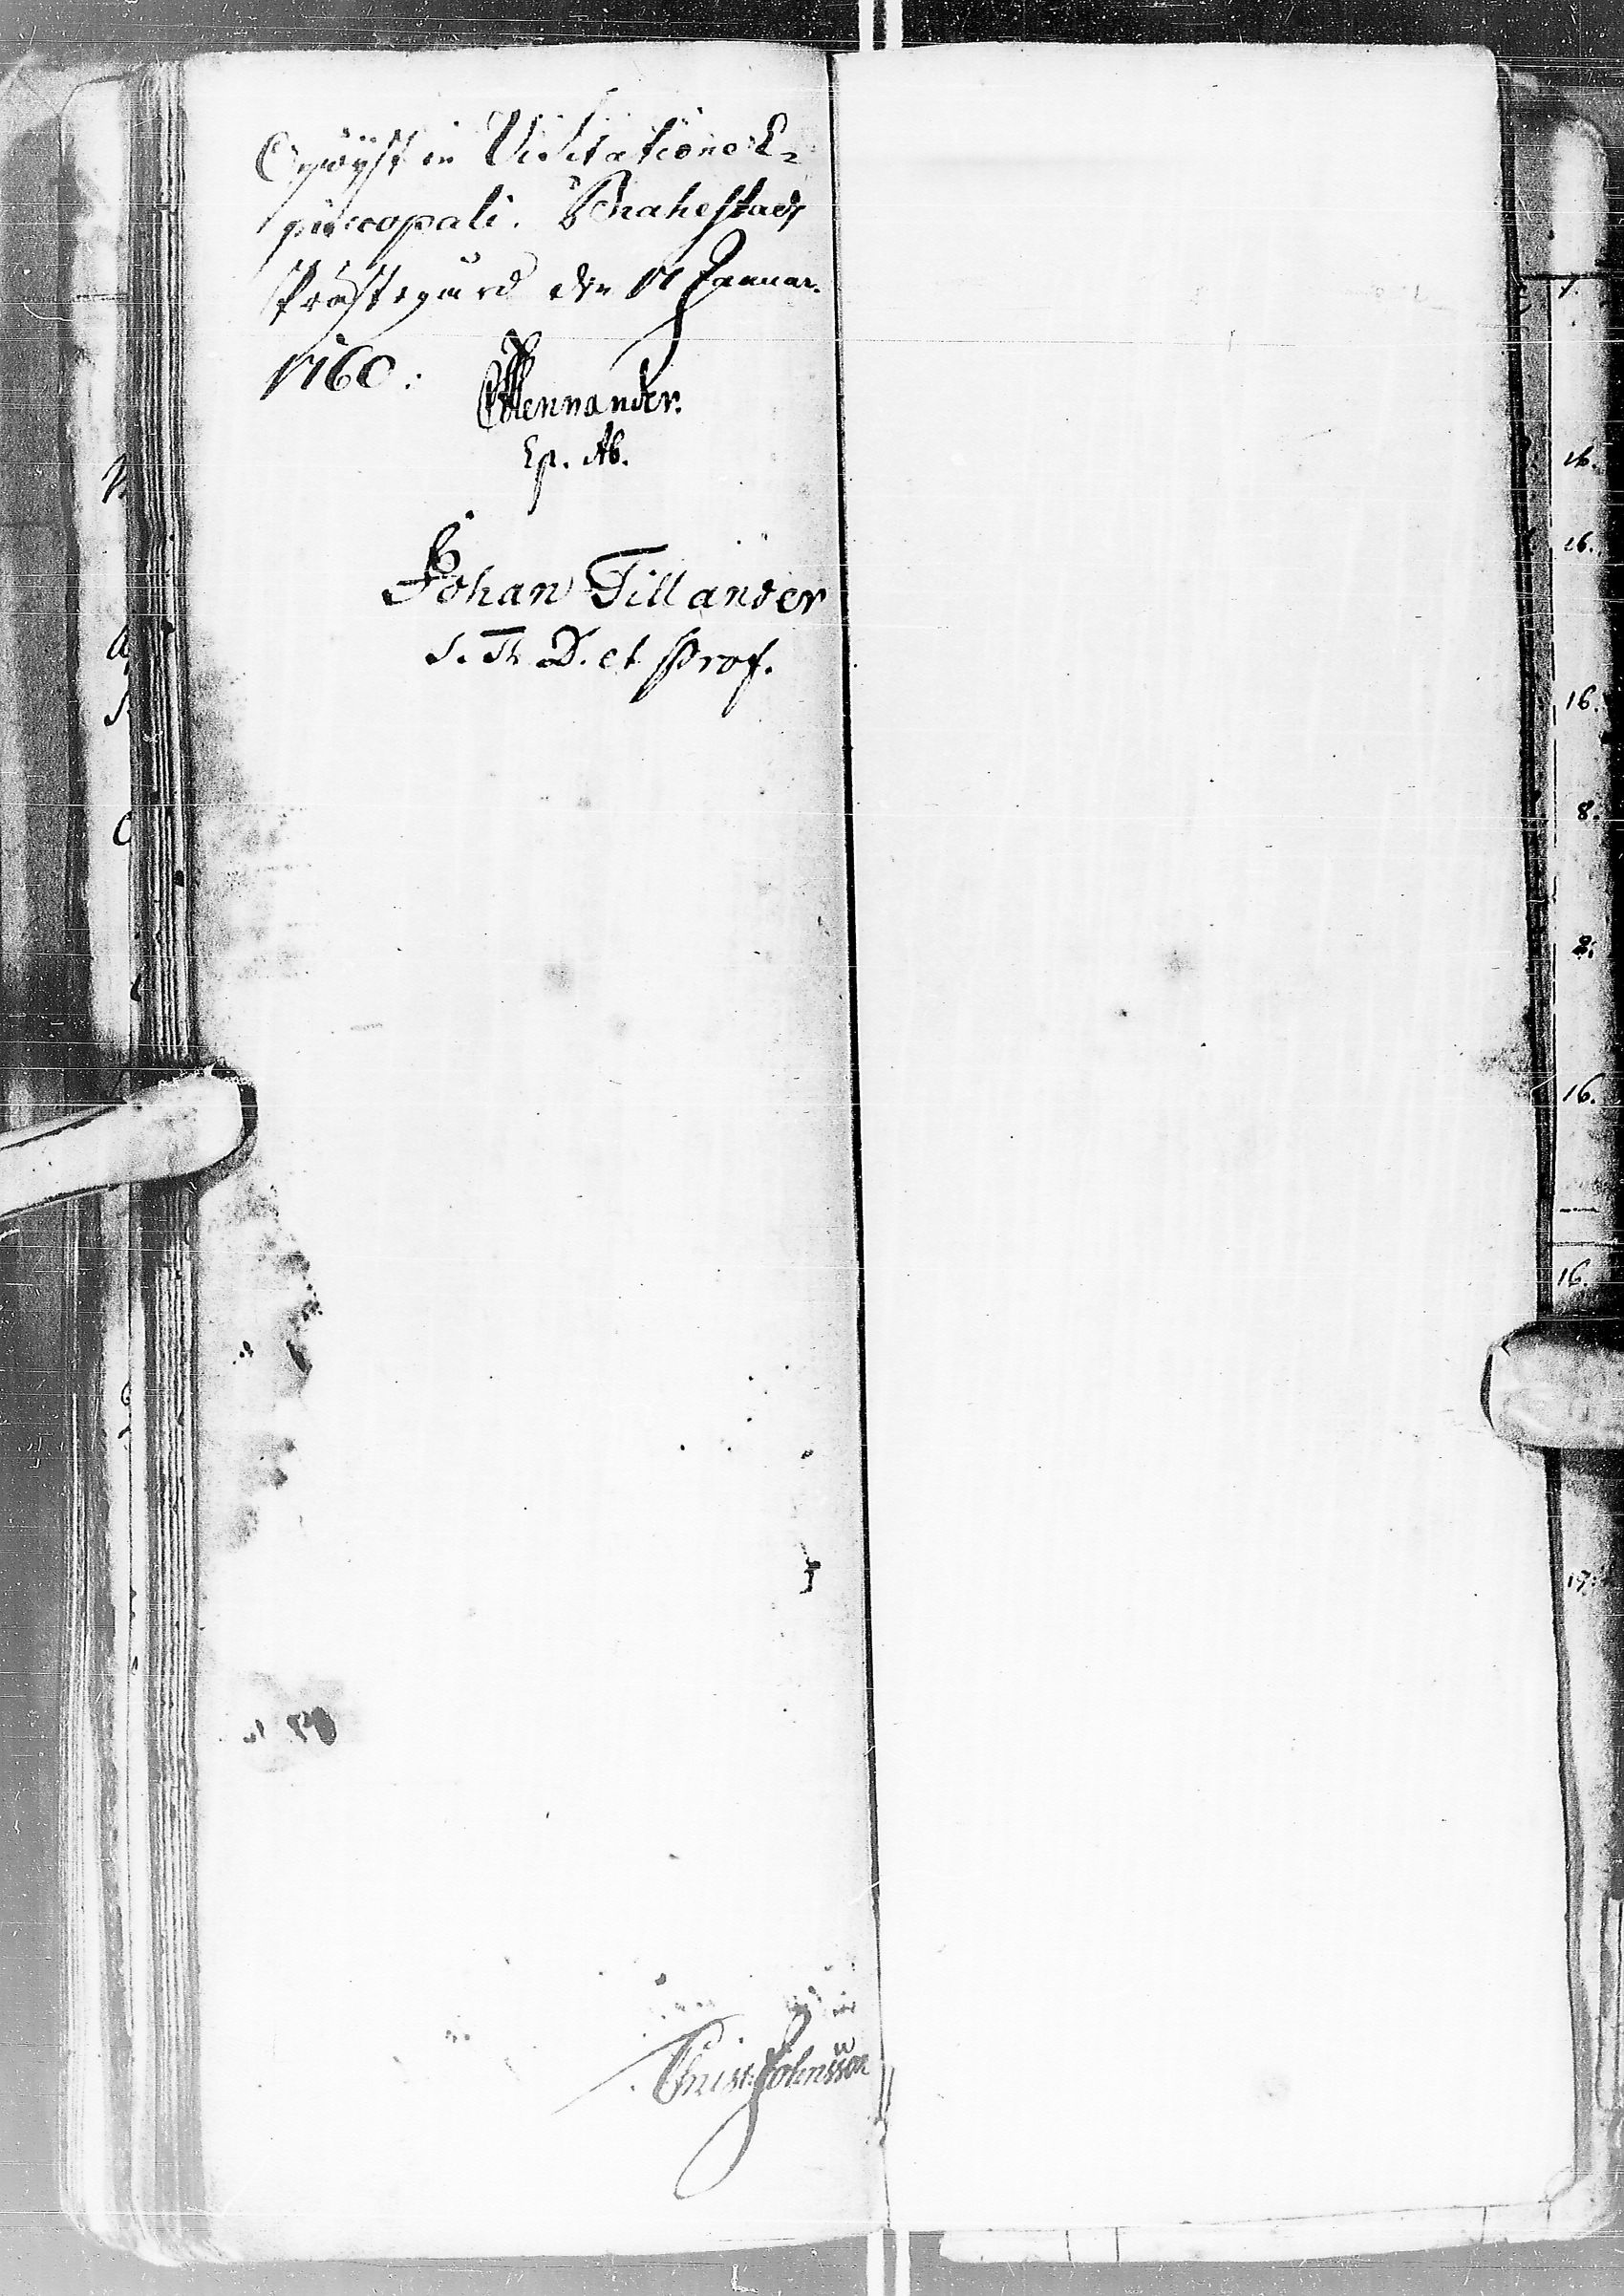 Opwyst in Visitatione E=
piscopali. Brahestads
Prästegård den 17 Januar.
1760:
CFMennander.
Ep. Ab.
Johan Tillander
S. Th. D. et Prof.
Christ: Johnsson
16.
16.
16.
8.
2.
16.
16.